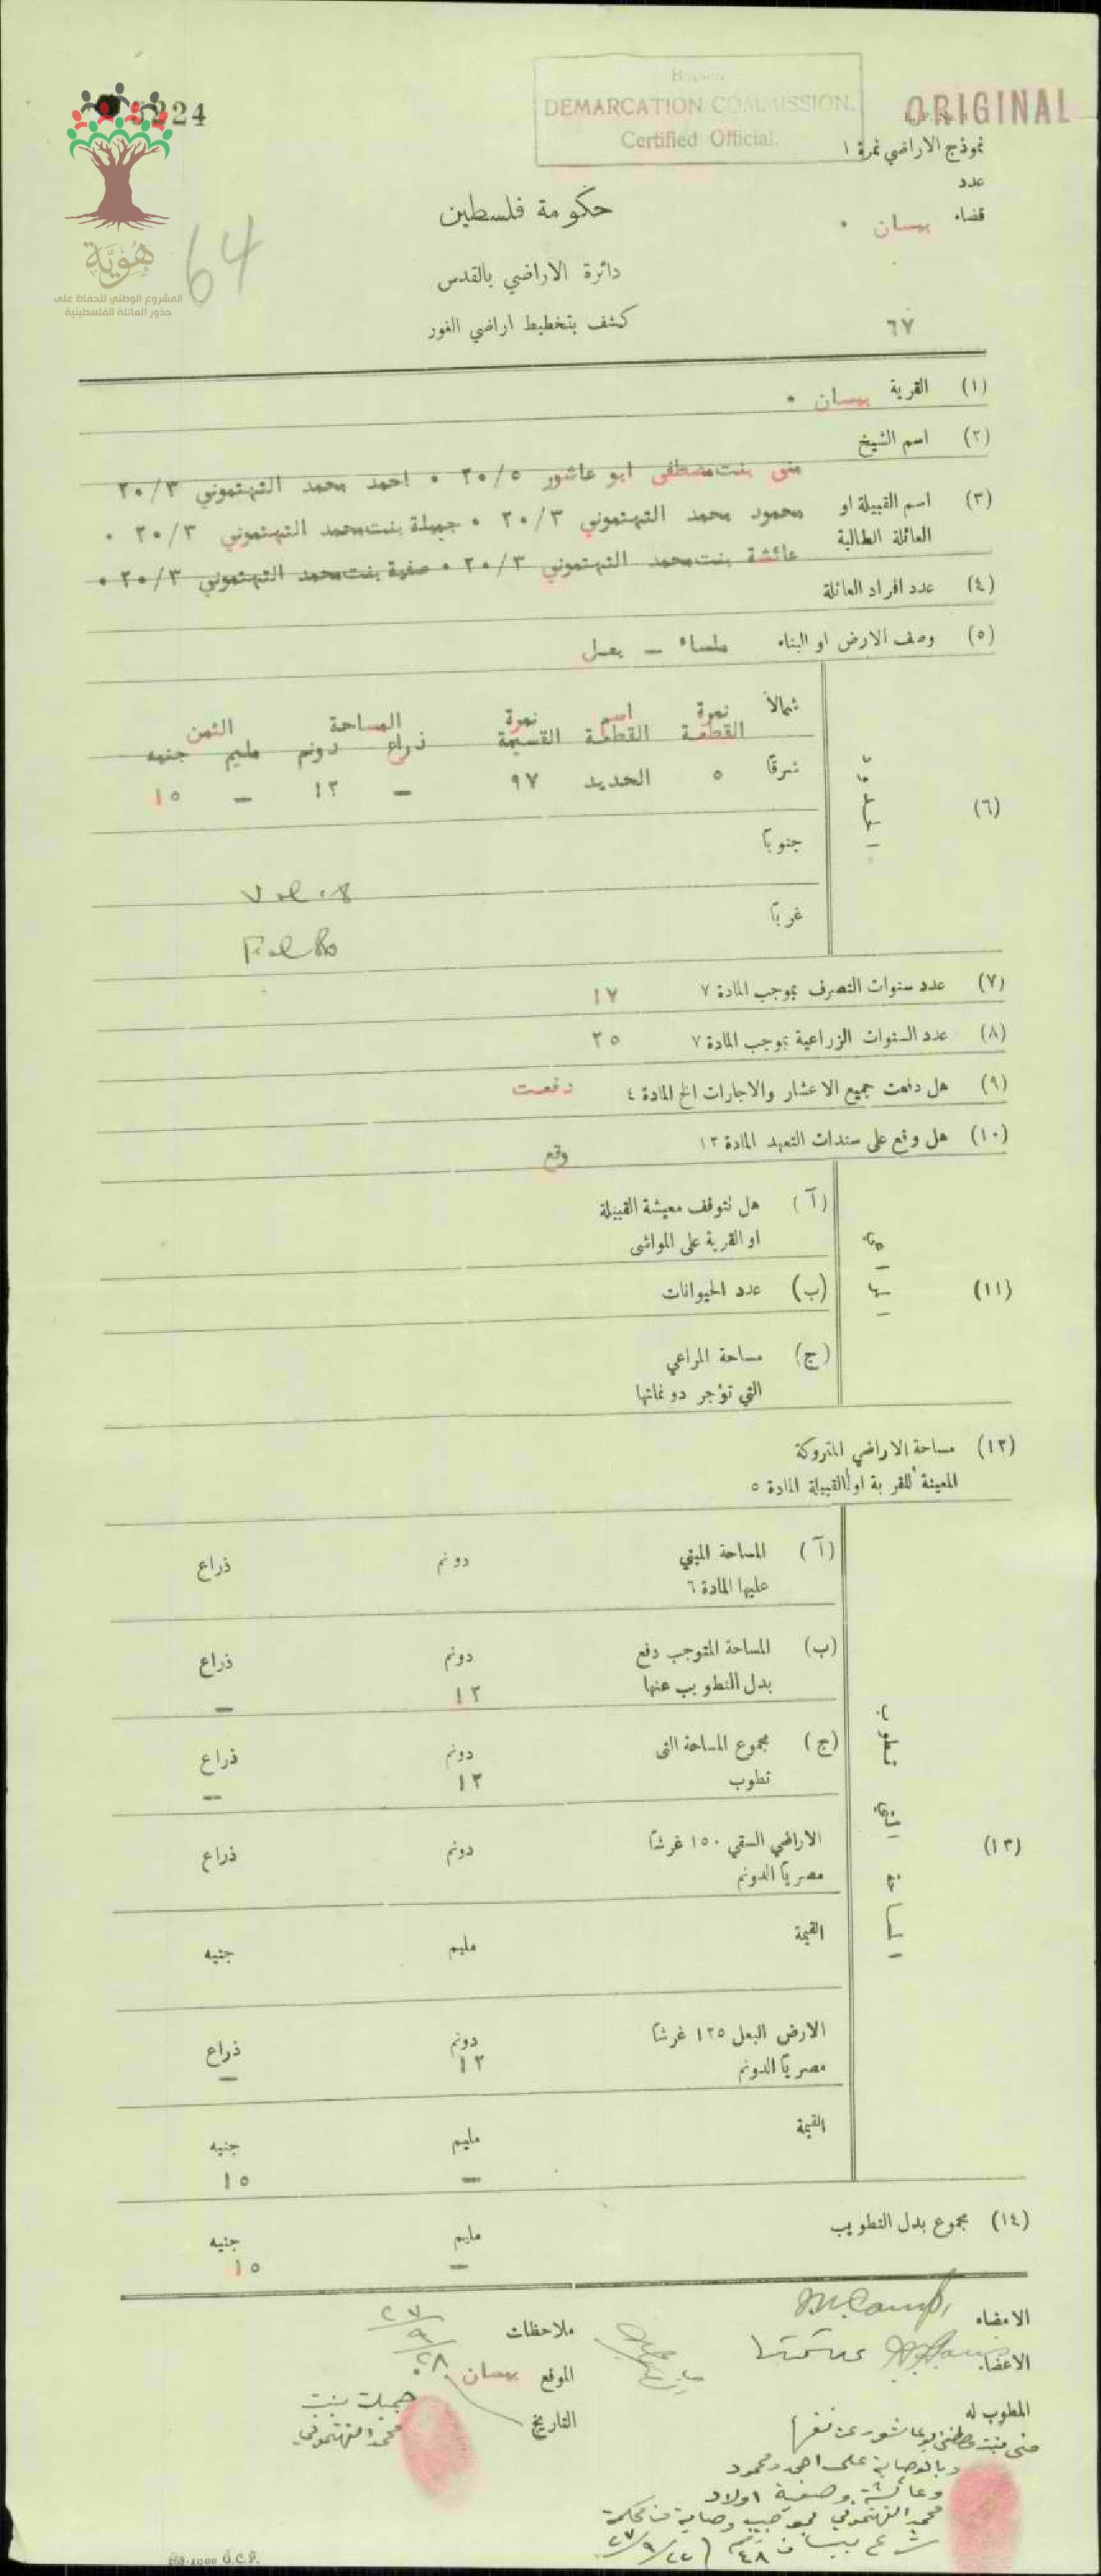 5224
Beisan
DEMARCATION COMMISSION.
Certified Official.
ORIGINAL
نموذج الاراضي نمرة ١
عدد
قضاء بيسان •
٦٧
64
هُوِيَّة
المشروع الوطني للحفاظ على
جذور العائلة الفلسطينية
حكومة فلسطين
دائرة الاراضي بالقدس
كشف بتخطيط اراضي الغور
(١) القرية بيسان •
(٢) اسم الشيخ
منى بنت مصطفى ابو عاشور ٢٠/٥ • احمد محمد التهتموني ٢٠/٣
(٣) اسم القبيلة او العائلة الطالبة
محمود محمد التهتموني ٢٠/٣ • جميلة بنت محمد التهتموني ٢٠/٣ •
عائشة بنت محمد التهتموني ٢٠/٣ • صفية بنت محمد التهتموني ٢٠/٣ •
(٤) عدد افراد العائلة
(٥) وصف الارض او البناء ملساء – بعل
(٦) الحدود
شمالاً
نمرة القطعة اسم القطعة نمرة القسيمة المساحة الثمن
ذراع دونم مليم جنيه
شرقاً
٥ الحديد ٩٧ – ١٢ – ١٥
جنوباً
Vol. 8
غرباً
Fol 80
(٧) عدد سنوات التصرف بموجب المادة ٧ ١٧
(٨) عدد السنوات الزراعية بموجب المادة ٧ ٢٥
(٩) هل دفعت جميع الاعشار والاجارات الخ المادة ٤ دفعت
(١٠) هل وقع على سندات التعهد المادة ١٣ وقع
(١١)
(آ) هل تتوقف معيشة القبيلة
او القرية على المواشي
(ب) عدد الحيوانات
(ج) مساحة المراعي
التي تؤجر دونماتها
(١٢) مساحة الاراضي المتروكة
المعينة للقرية او للقبيلة المادة ٥
(١٣) المساحة التي تطوب
(آ) المساحة المبني دونم ذراع
عليها المادة ٦
(ب) المساحة المتوجب دفع دونم ذراع
بدل التطويب عنها ١٢ –
(ج) مجموع المساحة التي دونم ذراع
تطوب ١٢ –
الاراضي السقي ١٥٠ غرشاً دونم ذراع
مصرياً الدونم
القيمة مليم جنيه
الارض البعل ١٢٥ غرشاً دونم ذراع
مصرياً الدونم ١٢ –
القيمة مليم جنيه
– ١٥
(١٤) مجموع بدل التطويب مليم جنيه
– ١٥
الامضاء
ملاحظات
٢٧/٩/٢٨
الاعضاء
الموقع بيسان
التاريخ
جميلة بنت
محمد التهتموني
المطوب له
منى بنت مصطفى ابو عاشور عن نفسها
وبالوصاية على احمد ومحمود
وعائشة وصفية اولاد
محمد التهتموني بموجب وصاية من محكمة
268-1000 G.C.P.